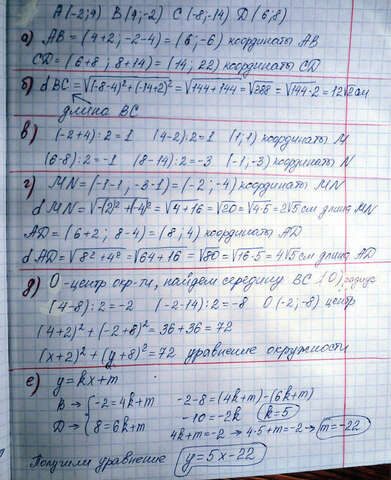 A(-2;4) B(4;-2) C(-8;-14) D(6;8)
а) AB = (4+2; -2-4) = (6;-6) координаты AB
CD = (6+8; 8+14) = (14; 22) координаты CD
б) d BC = √(-8-4)² + (-14+2)² = √144+144 = √288 = √144·2 = 12√2 см
длина BC
в) (-2+4):2=1 (4-2):2=1 (1;1) координаты M
(6-8):2=-1 (8-14):2=-3 (-1;-3) координаты N
г) MN = (-1-1; -3-1) = (-2; -4) координаты MN
d MN = √(-2)²+(-4)² = √4+16 = √20 = √4·5 = 2√5 см длина MN
AD = (6+2; 8-4) = (8; 4) координаты AD
d AD = √8²+4² = √64+16 = √80 = √16·5 = 4√5 см длина AD
д) O-центр окр-ти, найдем середину BC (O), радиус
(4-8):2=-2 (-2-14):2=-8 O(-2;-8) центр
(4+2)²+(-2+8)²=36+36=72
(x+2)²+(y+8)²=72 уравнение окружности
е) y=kx+m
B → {-2=4k+m -2-8=(4k+m)-(6k+m)
D → {8=6k+m -10=-2k k=5
4k+m=-2 → 4·5+m=-2 → m=-22
Получили уравнение y=5x-22